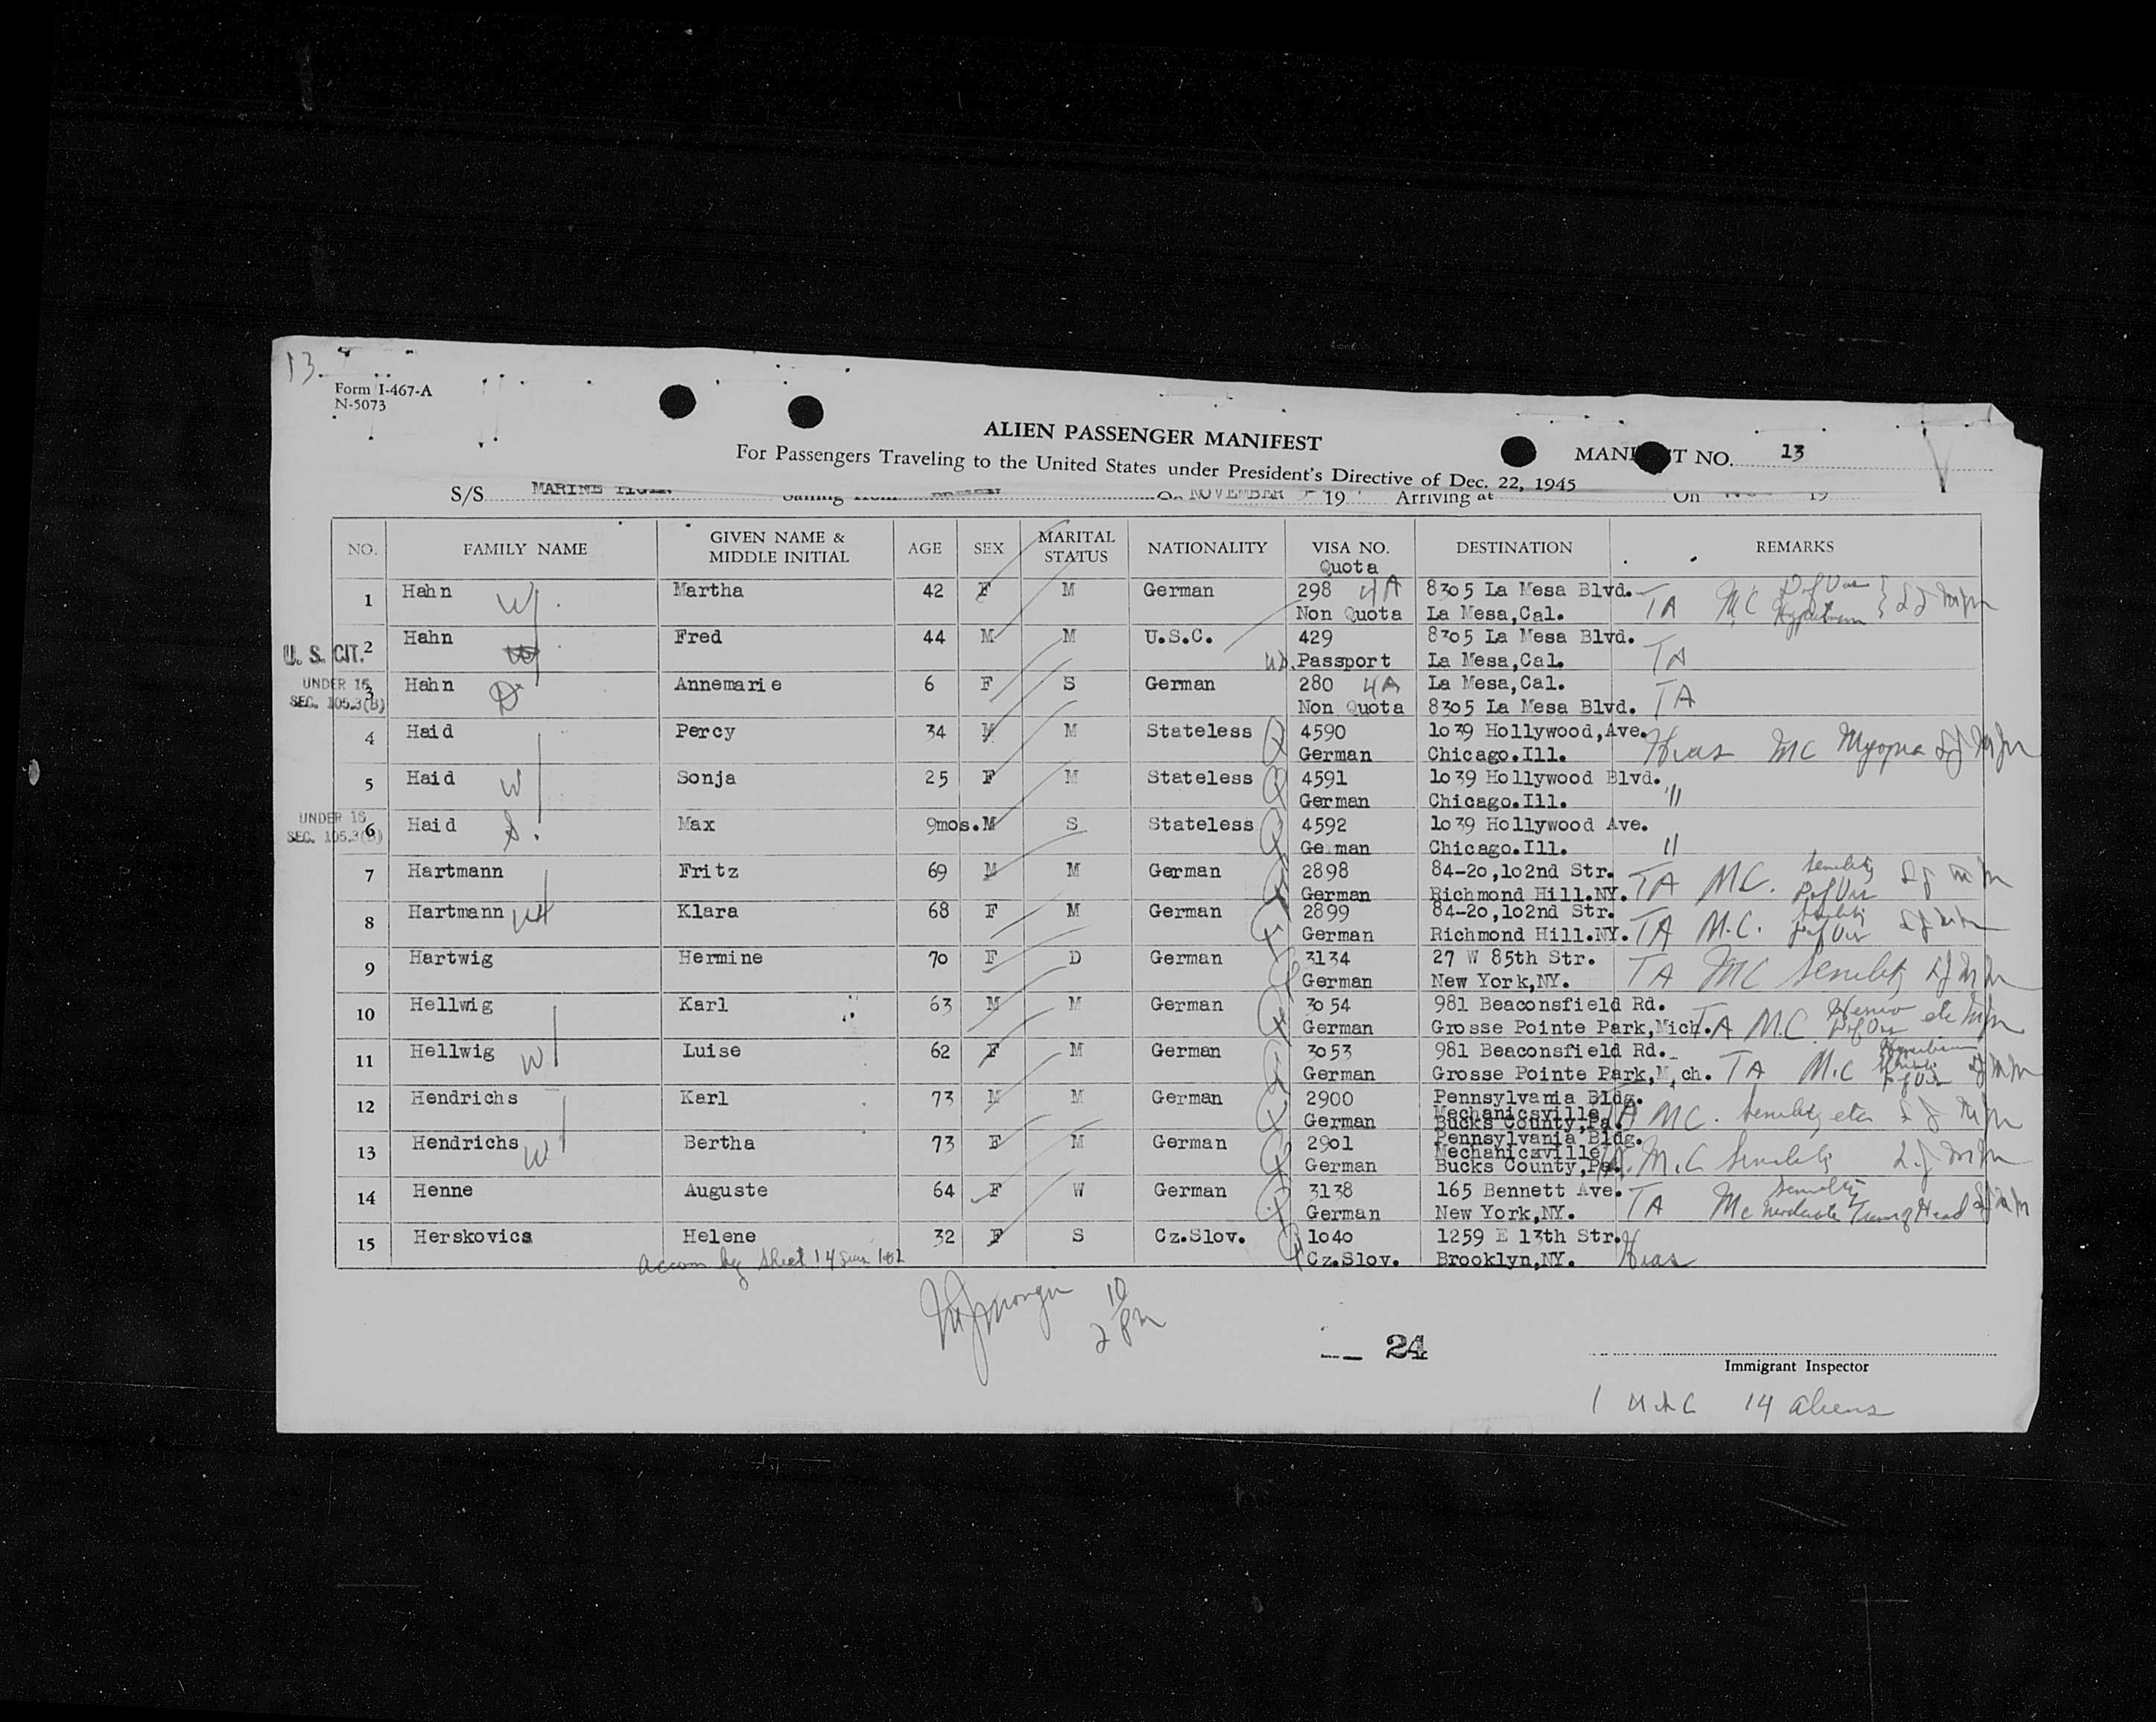 13
Form I-467-A
N-5073
ALIEN PASSENGER MANIFEST
MANIFEST NO. 13
For Passengers Traveling to the United States under President's Directive of Dec. 22, 1945
S/S MARINE Sailing from On NOVEMBER 19 Arriving at On 19
NO. FAMILY NAME GIVEN NAME & MIDDLE INITIAL AGE SEX MARITAL STATUS NATIONALITY VISA NO. DESTINATION REMARKS
Quota
1 Hahn W Martha 42 F M German 298 4A 8305 La Mesa Blvd. TA MC
Non Quota La Mesa,Cal.
U. S. CIT. 2 Hahn Fred 44 M M U.S.C. 429 8305 La Mesa Blvd. TA
Passport La Mesa,Cal.
UNDER 16 SEC. 105.3(B) 3 Hahn D Annemarie 6 F S German 280 4A La Mesa,Cal. TA
Non Quota 8305 La Mesa Blvd.
4 Haid Percy 34 M M Stateless Q 4590 1o39 Hollywood,Ave. Hias MC Myopia
German Chicago.Ill.
5 Haid W Sonja 25 F M Stateless Q 4591 1o39 Hollywood Blvd. "
German Chicago.Ill.
UNDER 16 SEC. 105.3(B) 6 Haid S. Max 9mos. M S Stateless Q 4592 1o39 Hollywood Ave. "
Ge man Chicago.Ill.
7 Hartmann Fritz 69 M M German Q 2898 84-2o,1o2nd Str. TA MC. Senility
German Richmond Hill.NY.
8 Hartmann W Klara 68 F M German Q 2899 84-2o,1o2nd Str. TA M.C.
German Richmond Hill.NY.
9 Hartwig Hermine 7o F D German Q 3134 27 W 85th Str. TA MC Senility
German New York,NY.
10 Hellwig Karl 63 M M German Q 3o54 981 Beaconsfield Rd. TA M.C. Hernia etc
German Grosse Pointe Park,Mich.
11 Hellwig W Luise 62 F M German Q 3o53 981 Beaconsfield Rd. TA M.C
German Grosse Pointe Park,M ch.
12 Hendrichs Karl 73 M M German Q 2900 Pennsylvania Bldg. MC. Senility etc
Mechanicsville
German Bucks County,Pa.
13 Hendrichs W Bertha 73 F M German Q 29o1 Pennsylvania Bldg. M.C Senility
Mechanicsville
German Bucks County,Pa.
14 Henne Auguste 64 F W German Q 3138 165 Bennett Ave. TA MC Senility
German New York,NY.
15 Herskovics Helene 32 F S Cz.Slov. Q 1o40 1259 E 13th Str. Hias
Cz.Slov. Brooklyn,NY.
Accom by sheet 14
24
Immigrant Inspector
14 aliens